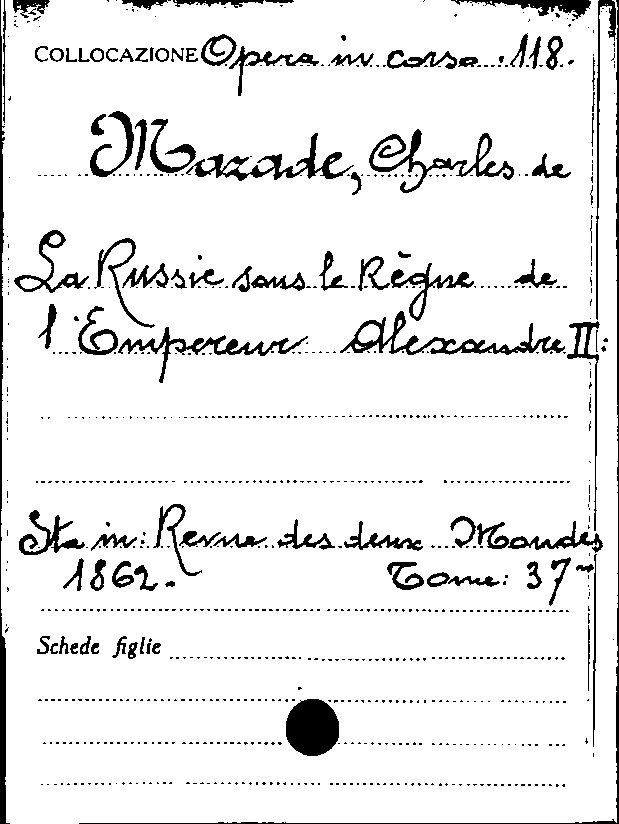 COLLOCAZIONE Opera in corso . 118.
Mazade, Charles de
La Russie sous le Règne de
l'Empereur Alexandre II:
Sta in: Revue des deux Mondes
1862. Tome: 37
Schede figlie